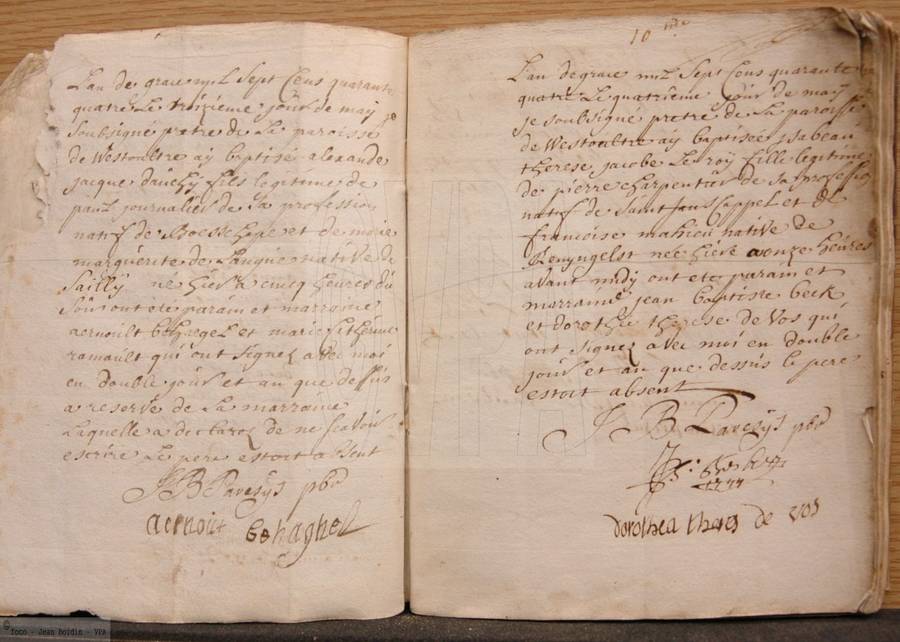 L'an de grace mil Sept Cens quarante
quatre Le troizieme jour de may je
soubsigné pretre de La paroisse
de Westoultre ay baptisé alexandre
jacque dauchy fils legitime de
paul journalier de Sa profession
natif de Boeschepe et de marie
marguerite de Lauque native de
Sailly né hier a cincq heures du
Soir ont été parain et marraine
aernoult behagel et marie
ramault qui ont Signez avec moi
en double jour et an que dessus
a reserve de La marraine
Laquelle a declarez de ne scavoir
escrire Le pere estoit absent
J B Pavesÿs pbr
aernout behaghel
10me
L'an de grace mil Sept Cens quarante
quatre Le quatrieme jour de may
je soubsigné pretre de La paroisse
de Westoultre aÿ baptisée Isabeau
therese jacobe Le roy fille legitime
de pierre charpentier de Sa profession
natif de Saint Jans Cappel et de
francoise mahieu native de
Renyngelst née hier a onze heures
avant midy ont etez parain et
marraine jean baptiste beck
et dorothee therese de Vos qui
ont Signez avec moi en double
jour et an que dessus le pere
estoit absent
J B Pavesÿs pbr
dorothea theres de vos
© foto - Jean Boidin - VVF